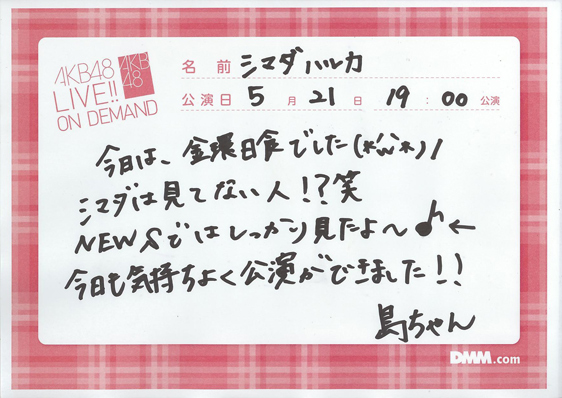 AKB48
LIVE!!
ON DEMAND
AKB
48
名前 シマダハルカ
公演日 5月21日 19:00公演
今日は、金環日食でした(*´ω`*)ノ
シマダは見てない人!?笑
NEWSではしっかり見たよ〜♪←
今日も気持ちよく公演ができました!!
島ちゃん
DMM.com